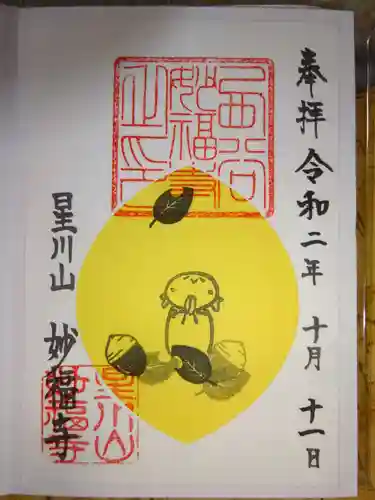 奉拝 令和二年 十月 十一日
星川山 妙福寺
星川山
妙福寺